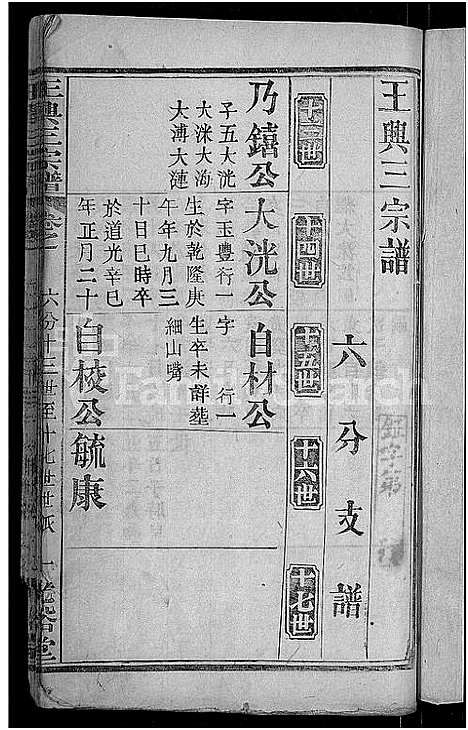 王興三宗譜
六分支譜
十三世
十四世
十五世
十六世
十七世
乃鐃公
子五大洸
大洣大洵
大溥大漣
大洸公
字玉豐行一
生於乾隆庚
午年九月三
十日巳時卒
於道光辛巳
年正月二十
自材公
字 行一
生卒未詳塟
細山嘴
自校公
毓康
王興三宗譜
六分十三世至十七世世系 一